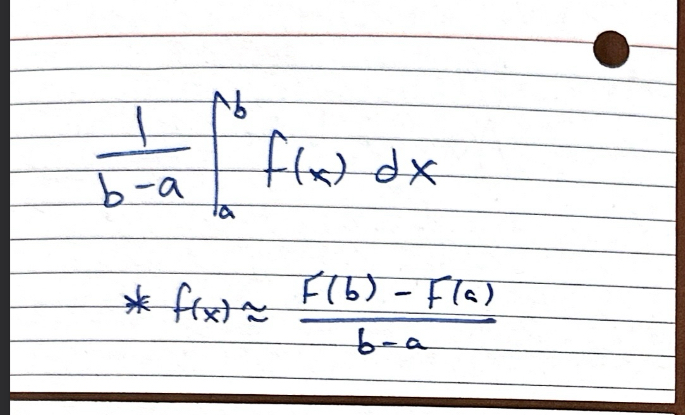 1/(b-a) ∫_a^b f(x) dx
* f(x) ≈ (F(b) - F(a))/(b-a)